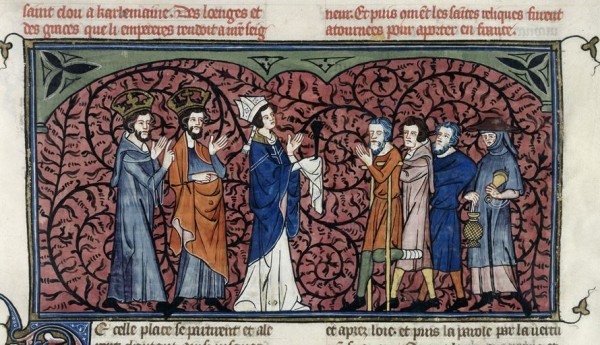 saint clou a karlemaine. Des loenges et
des graces que li empereres rendoit a nr̃e seig
neur. Et puis om̃ent les saĩtes reliques furent
atournees pour aporter en france.
E celle place se partirent et ale
et aprez loie. et puis la parole par la uertu